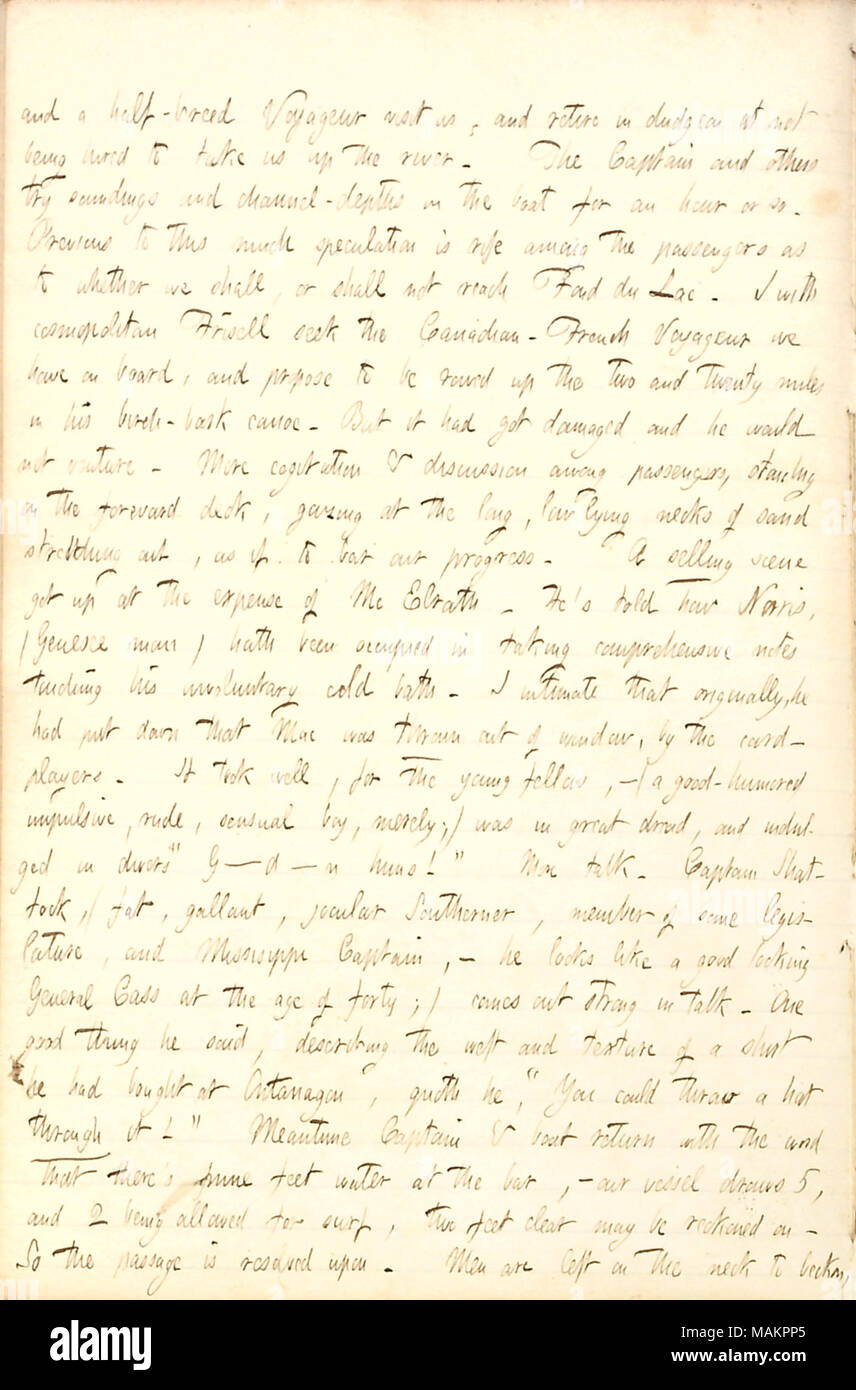 and a half-breed Voyageur visit us, and retire in dudgeon at not
being hired to take us up the river. The Captain and others
try soundings and channel-depths in the boat for an hour or so.
Previous to this much speculation is rife among the passengers as
to whether we shall, or shall not reach Fond du Lac. I with
cosmopolitan Frisell seek the Canadian-French Voyageur we
have on board, and propose to be rowed up the two and twenty miles
in his birch-bark canoe. But it had got damaged and he would
not venture. More cogitation & discussion among passengers, standing
on the forward deck, gazing at the long, low lying necks of sand
stretching out, as if to bar our progress. A selling scene
got up at the expense of Mc Elrath. He's told how Norris,
(Genesee man) hath been occupied in taking comprehensive notes
touching his involuntary cold bath. I intimate that originally, he
had put down that Mac was thrown out of window, by the card-
players. It took well, for the young fellow, -(a good-humored
impulsive, rude, sensual boy, merely;) was in great dread, and indul-
ged in divers "G-d-n hims!" More talk. Captain Shat-
tock, (fat, gallant, jocular Southerner, member of some legis-
lature, and Missisippi Captain, - he looks like a good looking
General Cass at the age of forty;) comes out strong in talk. One
good thing he said, describing the weft and texture of a shirt
he had bought at Ontanagon", quoth he, "You could throw a hat
through it!" Meantime Captain & boat return with the word
that there's nine feet water at the bar, - our vessel draws 5,
and 2 being allowed for surf, two feet clear may be reckoned on.
So the passage is resolved upon. Men are left on the neck to beckon,
alamy
Image ID: MAKPP5
www.alamy.com